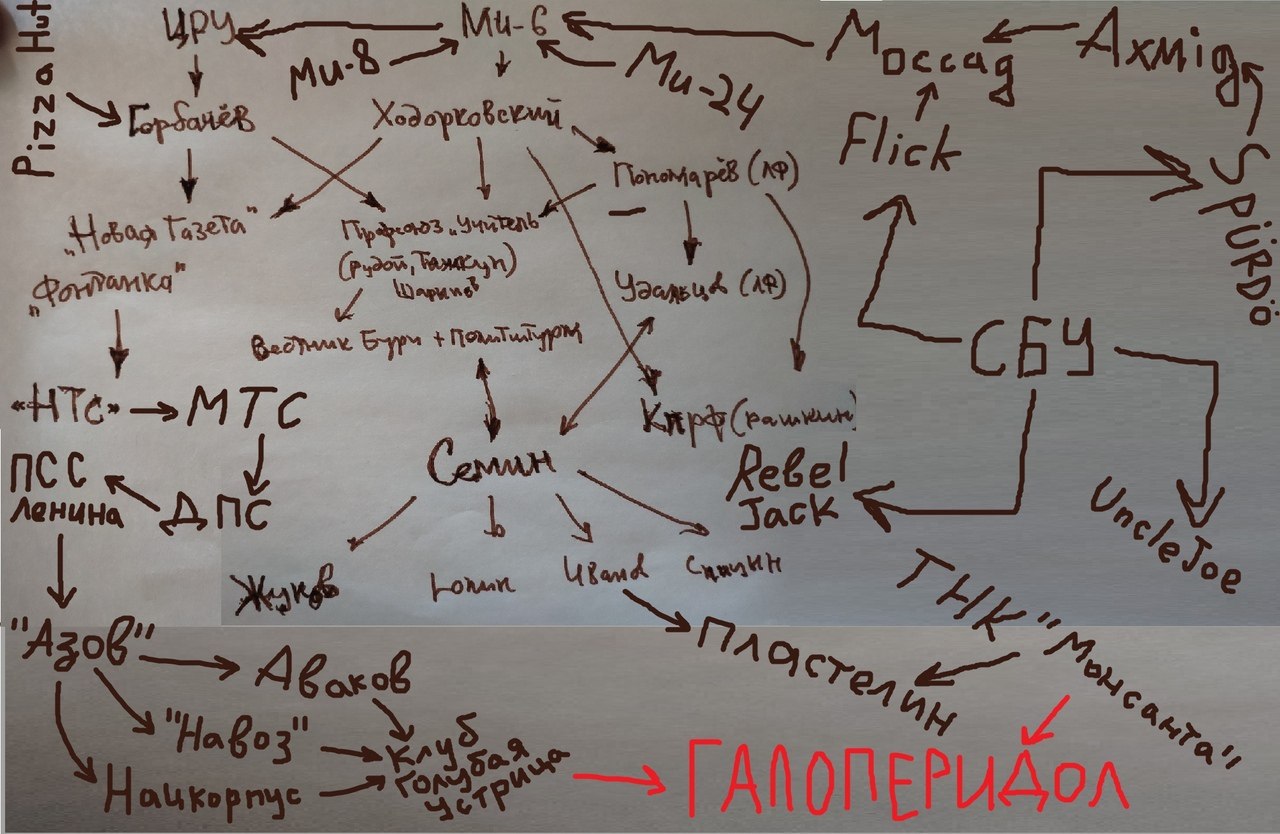 Pizza Hut
ЦРУ
Ми-6
Ми-8
Ми-24
Моссад
Ахмід
Горбачёв
Ходорковский
Flick
Spürdö
Пономарёв (ЛФ)
„Новая Газета"
Профсоюз „Учитель"
(Рудой, Тажкун)
„Фонтанка"
Удальцов (ЛФ)
Вестник Бури + Политштурм
СБУ
«НТС»
МТС
Кпрф (рашкин)
Семин
Rebel
Jack
ПСС
Ленина
ДПС
UncleJoe
Жуков
Иванов
Спицин
ТНК "Монсанта"
Пластелин
"Азов"
Аваков
"Навоз"
Нацкорпус
Клуб
Голубая
устрица
ГАЛОПЕРИДОЛ